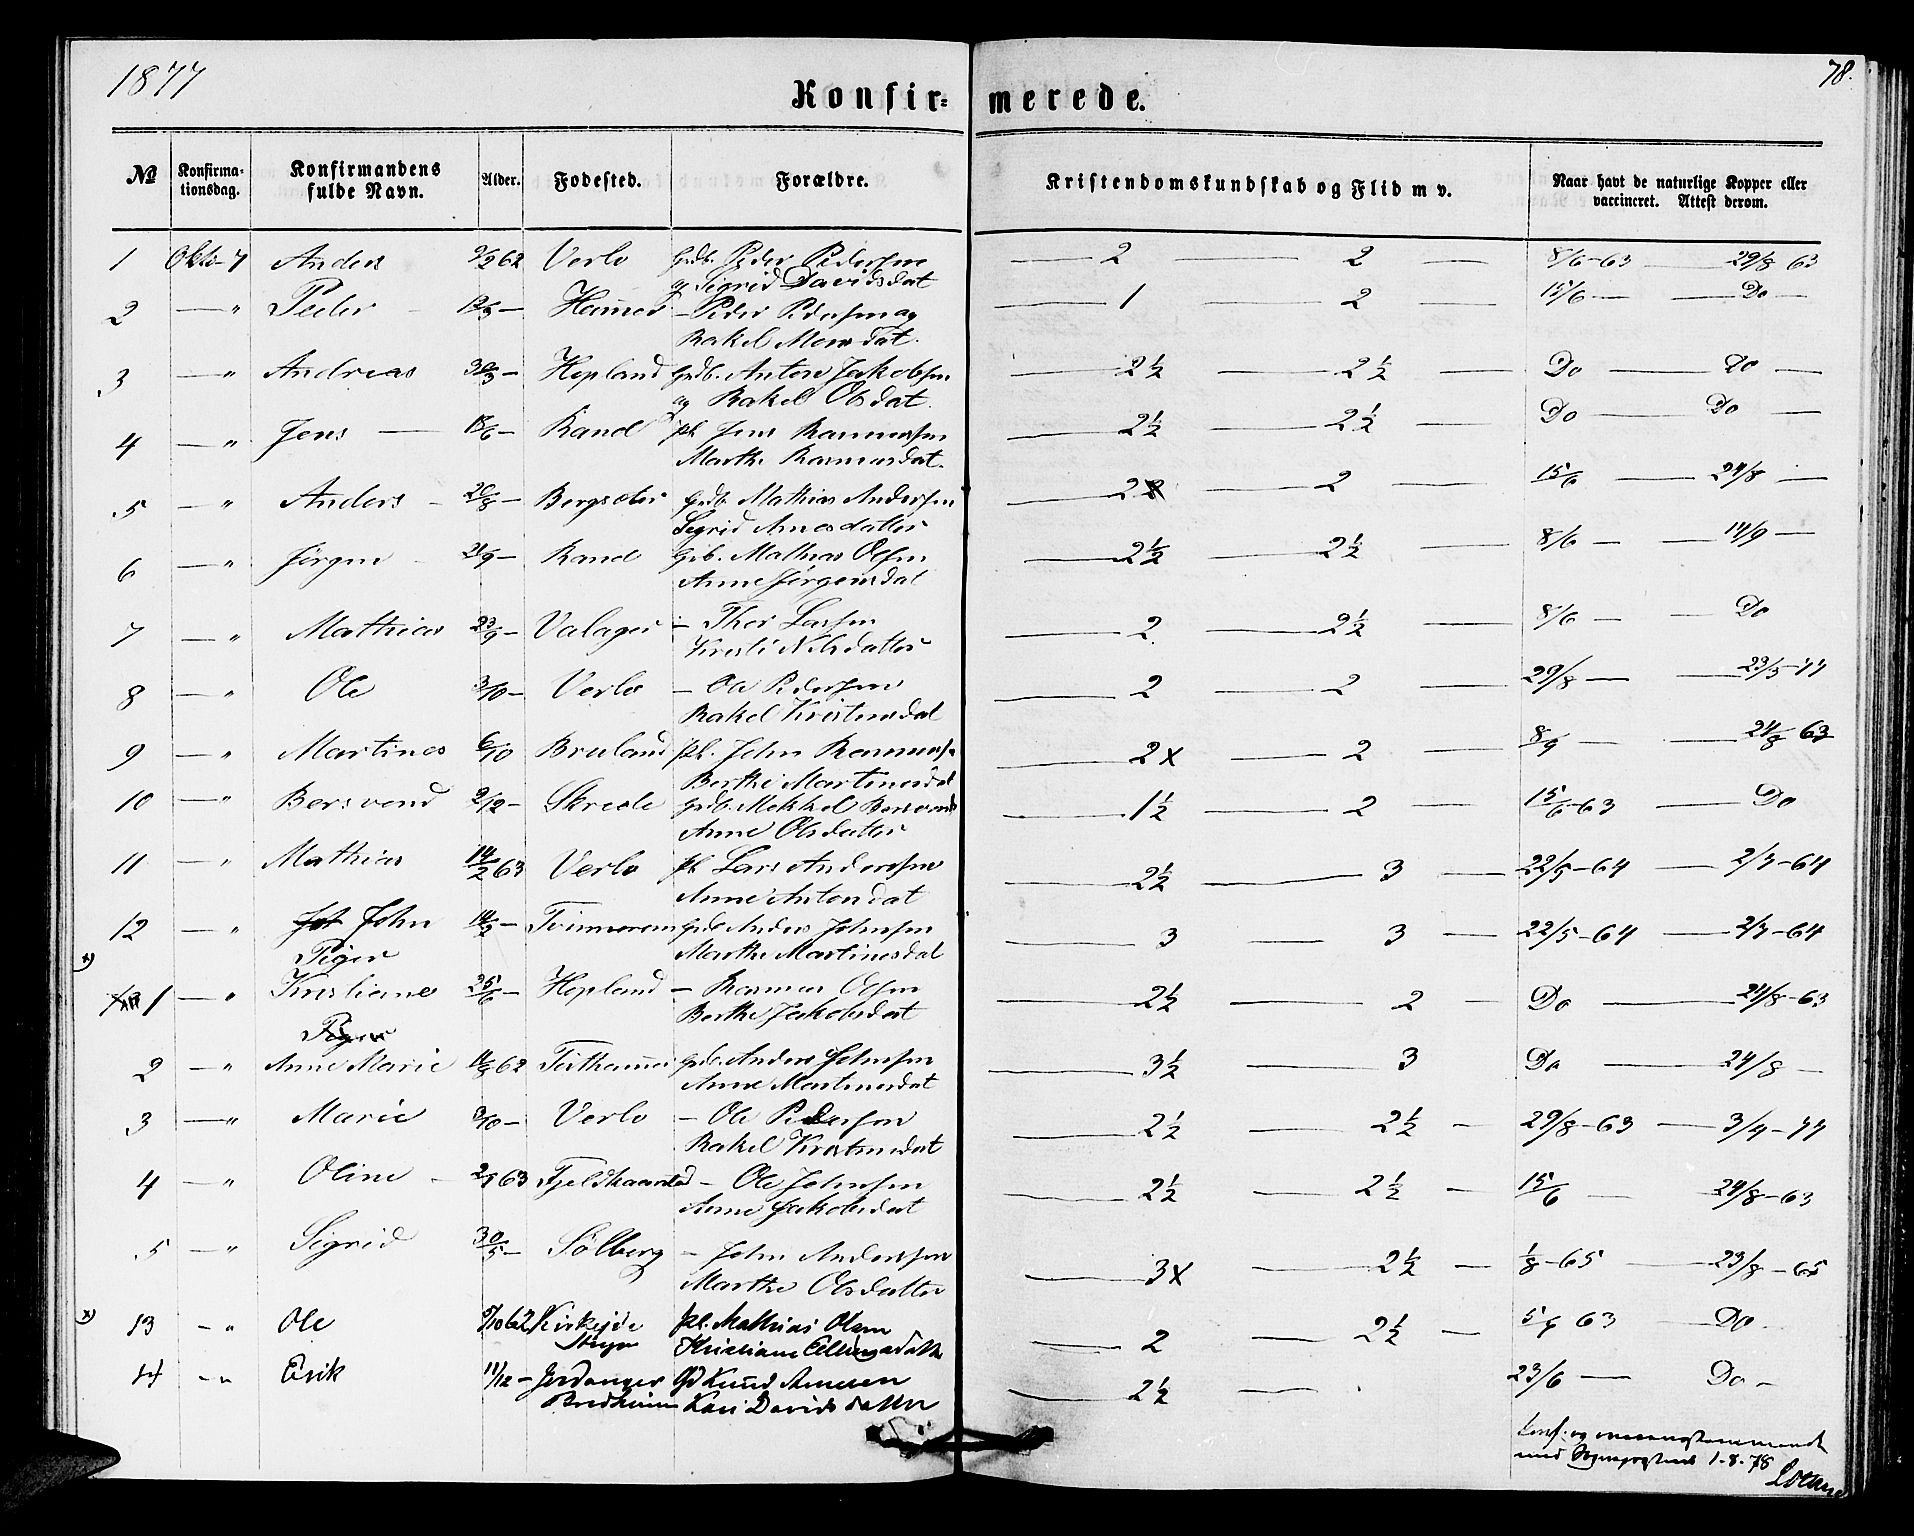 1877
78.
Konfir= merede.
№ Konfirma-tionsdag. Konfirmandens fulde Navn. Alder. Fødested. Forældre. Kristendomskundskab og Flid m v. Naar havt de naturlige Kopper eller vaccineret. Attest derom.
1 Oktr 7 Anders 9/2 62 Verlo Grdb. Peder Pedersen 2 2 8/6-63 29/8 63
og Sigrid Davidsdat
2 — " Peder Hammer — Peder Pedersen og 1 2 15/6 — Do —
Rakel Monsdat.
3 — " Andreas 30/3 — Hopland Grdb. Anton Jakobsen 2½ 2½ Do Do —
og Rakel Olsdat.
4 — " Jens 18/6 — Rand pl. Jens Rasmussen 2½ 2½ Do Do —
Marthe Rasmusdat.
5 — " Anders 20/8 — Bergsæter Grdb. Mathias Andersen 2 2 15/6 24/8 —
Sigrid Arnesdatter
6 — " Jørgen 21/9 — Rand Grb. Mathias Olsen 2½ 2½ 8/6 — 14/9 —
Anne Jørgensdat
7 — " Mathias 23/9 — Valager — Thor Larsen 2 2½ 8/6 — Do
Kristi Nilsdatter
8 — " Ole 3/10 — Verlo — Ole Pedersen 2 2 29/8 — 23/3-77
Rakel Kristensdat
9 — " Martines 6/10 Bruland pl. John Rasmuss 2x 2 24/8 63
Berthe Martinusdat
10 — " Bersvend 9/12 — Skrede Grdb. Mekkel Bersvends 1½ 2 15/6-63 Do
Anne Olsdatter
11 — " Mathias 14/2 63 Verlo pl. Lars Andersen 2½ 3 22/5-64 2/7-64
Anne Antondat
12 — " John Tvinnerem Grdb Anders Johnsen 3 3 22/5-64 2/7-64
Piger Marthe Martinesdat
x) 1 — " Kristiane 25/6 — Hopland — Rasmus Olsen 2½ 2 Do 24/8-63
Piger Berthe Jakobsdat
2 — " Anne Marie 62 Grdb Anders Johnsen 3½ 3 Do 24/8 —
Anne Martinusdat
3 — " Marie 3/10 — Verlo — Ole Pedersen 2½ 2½ 29/8-63 3/4-77
Rakel Kristensdat
4 — " Oline 63 — Ole Johnsen 2½ 2½ 15/6 24/8-63
Anne Jakobsdat
5 — " Sigrid 30/5 — Sølberg — John Andersen 3x 2½ 1/8-65 23/8-65
Marthe Olsdatter
x) 13 — " Ole 9/10 62 Kirkeide pl. Mathias Olsen 2 2½ 63 Do
Stryn Kristiane Ellingsdatter
14 — " Erik 11/12 — Jordanger Gd Knud Arnesen 2½ 23/6 — Do —
Bredheim Kari Davidsdatter
1-8-78